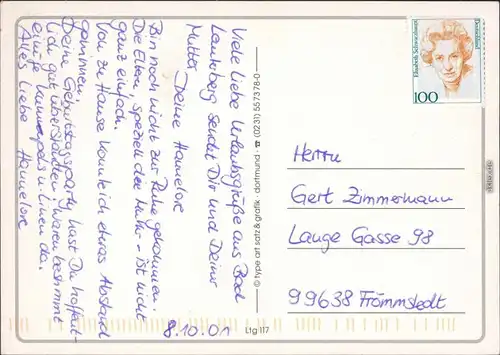 Viele liebe Urlaubsgrüße aus Bad
Lauterberg sendet Dir und Deiner
Mutti Deine Hannelore
Bin noch nicht zur Ruhe gekommen.
Die Eltern, speziell der - ist nicht
ganz einfach.
Von zu Hause konnte ich etwas Abstand
gewinnen.
Deine Geburtstagsparty hast Du hoffent-
lich gut überstanden! Waren bestimmt
einige da.
Alles Liebe Hannelore
8.10.01
Ltg 117
© type art satz & grafik · dortmund · ☎ (0231) 557378-0
Deutschland
Elisabeth Schwarzhaupt
100
Herrn
Gert Zimmermann
Lange Gasse 98
99638 Frömmstedt